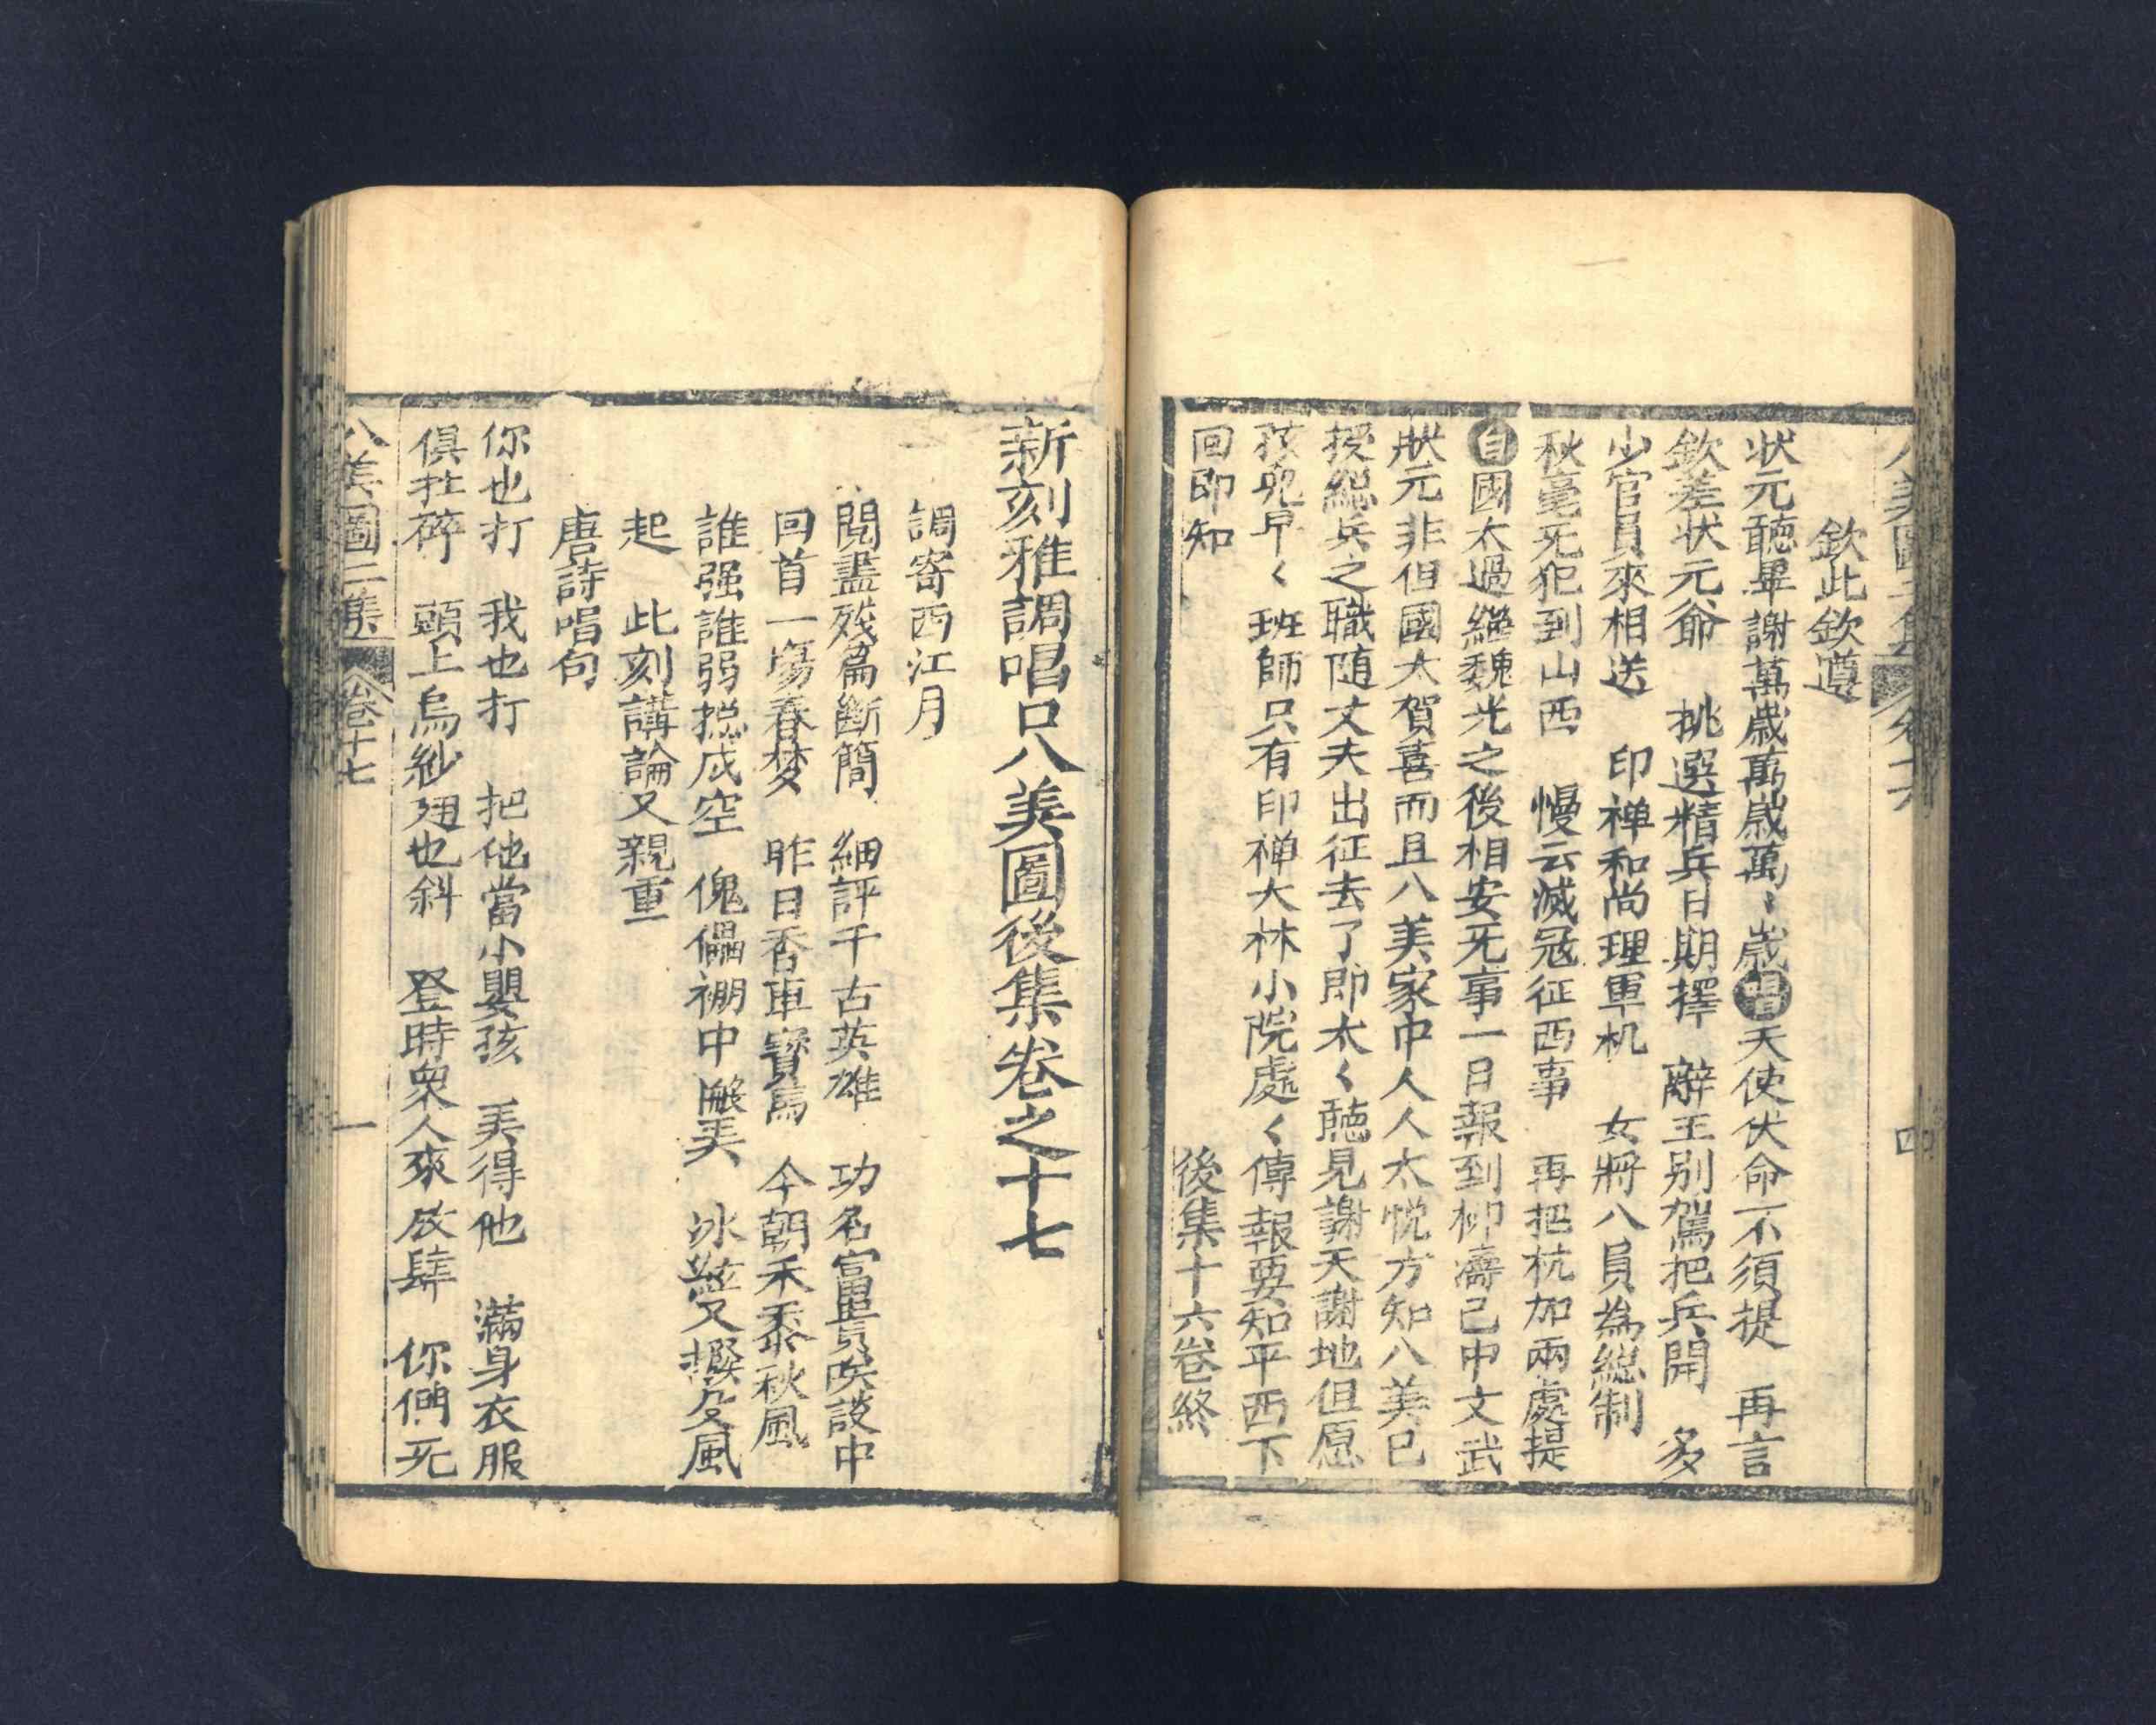 八美圖二集 卷十六 四
欽此欽遵
状元聽畢謝萬歲萬歲萬〻歲唱天使伏命不須提 再言
欽差状元爺 挑選精兵日期擇 辭王别駕把兵開 多
少官員來相送 印禅和尚理軍机 女將八員為緫制
秋毫无犯到山西 慢云滅冦征西事 再把杭加兩處提
自國太過繼魏光之後相安无事一日報到柳濤已中文武
状元非但國太賀喜而且八美家中人人太悦方知八美已
授緫兵之職随丈夫出征去了即太〱聽見謝天謝地但愿
孩兒早〱班師只有印禅大林小院處〱傳報要知平西下
回即知
後集十六卷終
新刻雅調唱口八美圖後集卷之十七
調寄西江月
閱盡殘篇斷簡 細評千古英雄 功名富貴咲談中
回首一場春梦 昨日香車寳馬 今朝禾黍秋風
誰强誰弱捴成空 傀儡棚中 冰絃又撥灰風
起 此刻講論又親重
唐詩唱句
你也打 我也打 把他當小嬰孩 美得他 滿身衣服
俱扯碎 頭上烏紗翅也斜 登時衆人來放肆 你們无
八美圖二集 卷十七 一